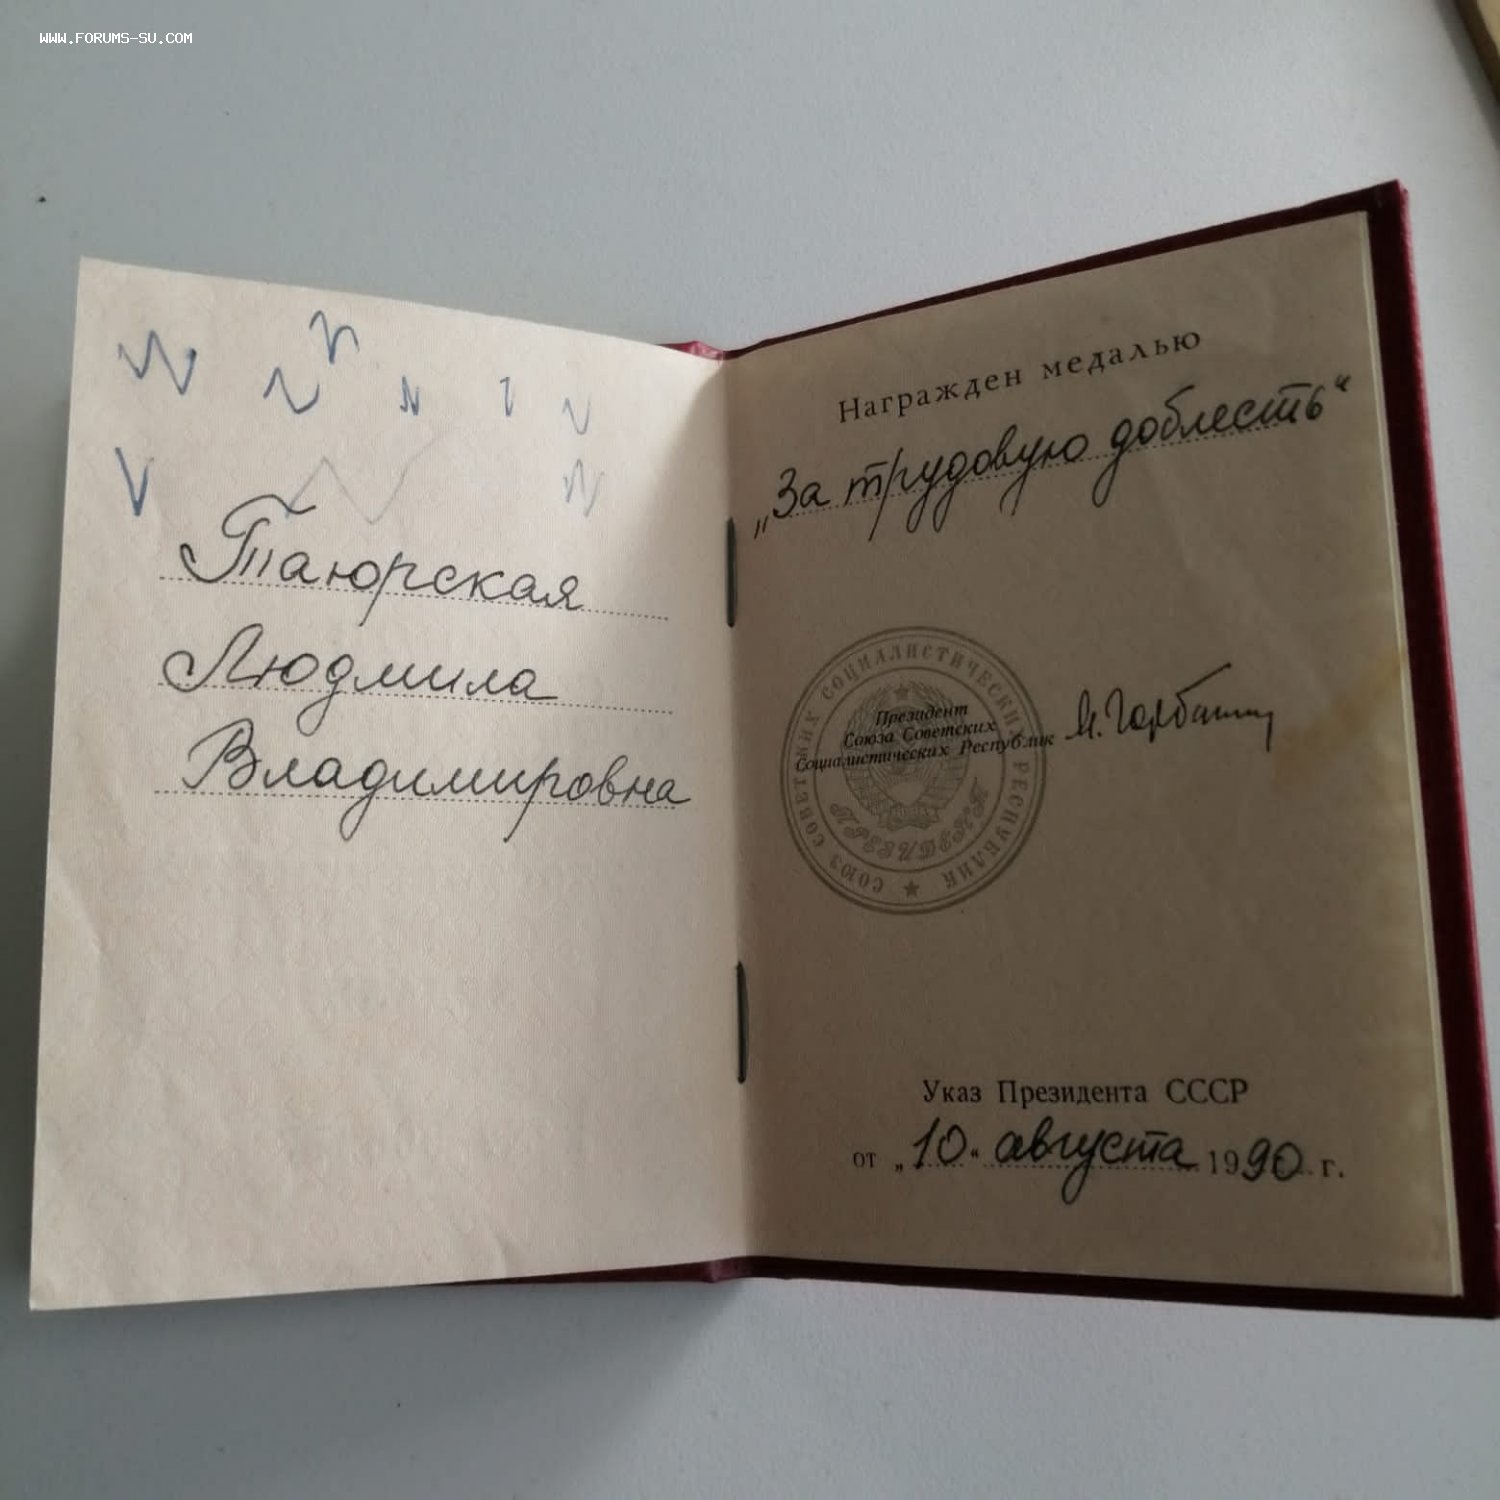 WWW.FORUMS-SU.COM
Таюрская
Людмила
Владимировна
Награжден медалью
„За трудовую доблесть“
СОЮЗ СОВЕТСКИХ СОЦИАЛИСТИЧЕСКИХ РЕСПУБЛИК
Президент
Союза Советских
Социалистических Республик
М. Горбачев
ПРЕЗИДЕНТ
Указ Президента СССР
от „10“ августа 1990 г.